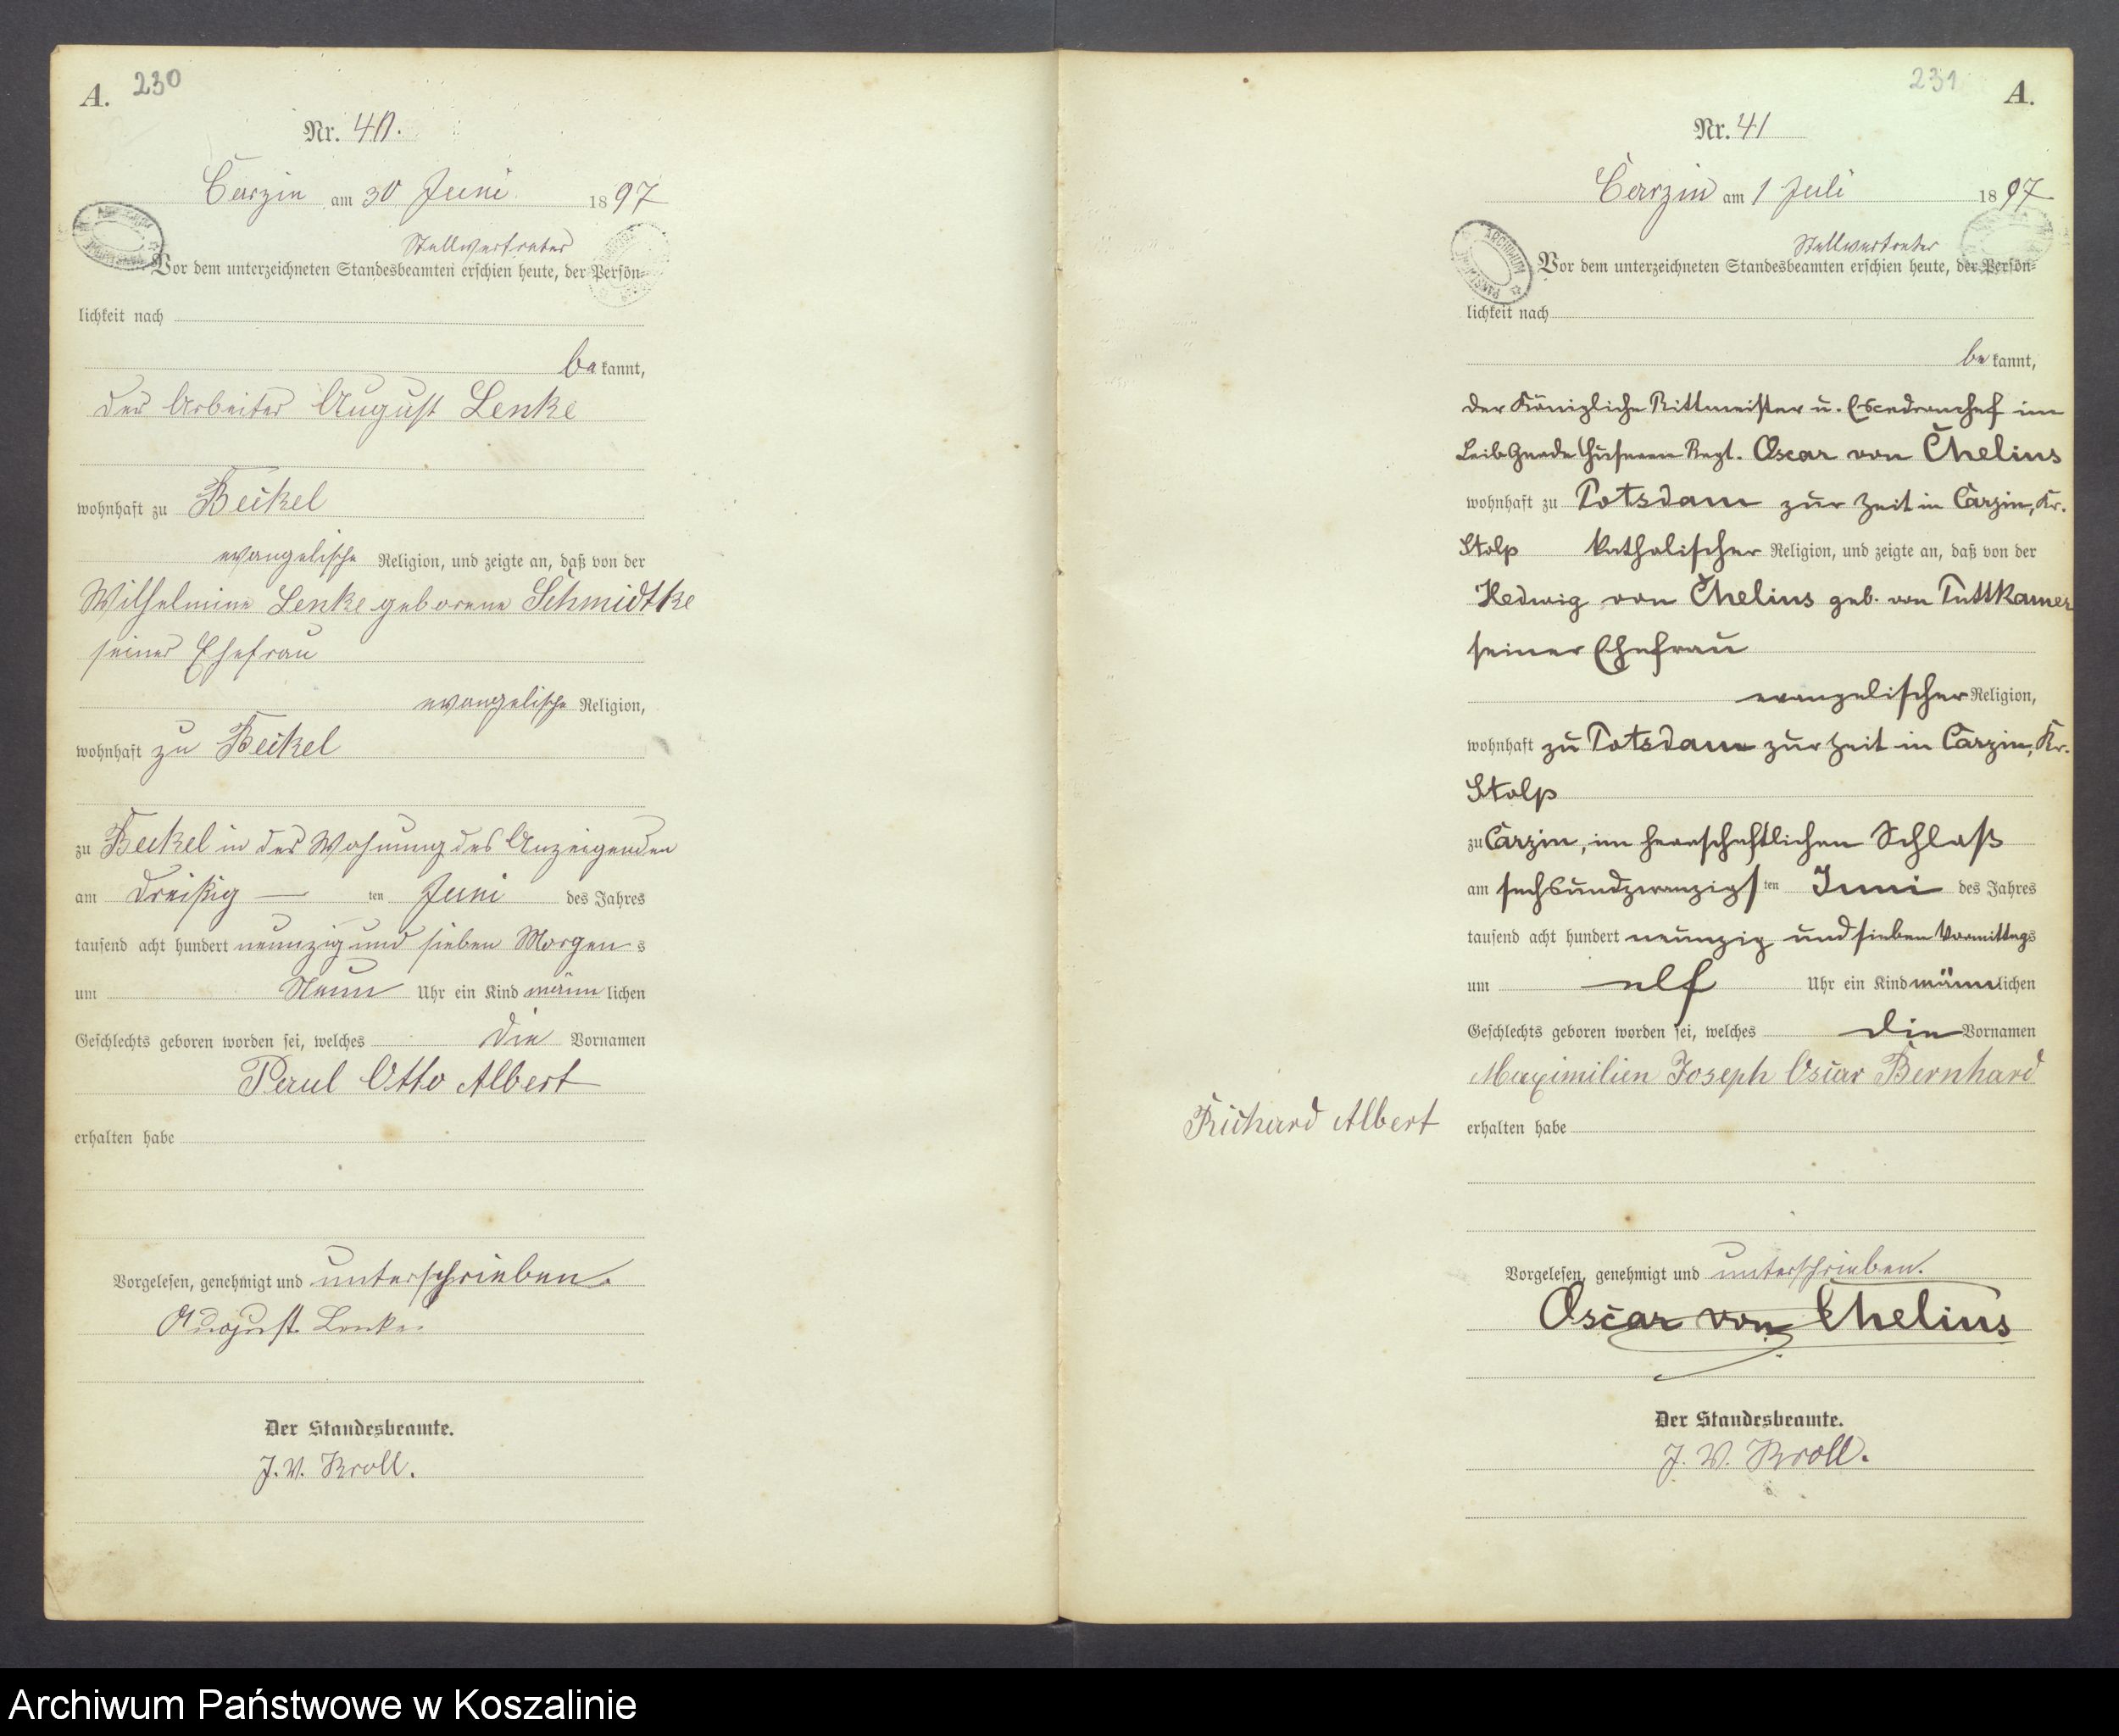 A. 230
Nr. 40.
Carzin am 30 Juni 1897
Stellvertreter
Vor dem unterzeichneten Standesbeamten erschien heute, der Persön-
lichkeit nach
bekannt,
der Arbeiter August Lenke
wohnhaft zu Beikel
evangelische Religion, und zeigte an, daß von der
Wilhelmine Lenke geborene Schmidtke
seiner Ehefrau
evangelische Religion,
wohnhaft zu Beikel
zu Beikel in der Wohnung des Anzeigenden
am dreißig ten Juni des Jahres
tausend acht hundert neunzig und sieben Morgens
um Neun Uhr ein Kind männlichen
Geschlechts geboren worden sei, welches die Vornamen
Paul Otto Albert
erhalten habe
Vorgelesen, genehmigt und unterschrieben.
August Lenke
Der Standesbeamte.
J. V. Kroll.
231 A.
Nr. 41
Carzin am 1 Juli 1897
Stellvertreter
Vor dem unterzeichneten Standesbeamten erschien heute, der Persön-
lichkeit nach
bekannt,
der Königliche Rittmeister u. Escadronchef im
Leib Garde Husaren Regt. Oscar von Chelius
wohnhaft zu Potsdam zur Zeit in Carzin, Kr.
Stolp katholischer Religion, und zeigte an, daß von der
Hedwig von Chelius geb. von Puttkamer
seiner Ehefrau
evangelischer Religion,
wohnhaft zu Potsdam zur Zeit in Carzin, Kr.
Stolp
zu Carzin, im herrschaftlichen Schloß
am sechsundzwanzigsten Juni des Jahres
tausend acht hundert neunzig und sieben Vormittags
um elf Uhr ein Kind männlichen
Geschlechts geboren worden sei, welches die Vornamen
Maximilien Joseph Oscar Bernhard
Richard Albert erhalten habe
Vorgelesen, genehmigt und unterschrieben.
Oscar von Chelius
Der Standesbeamte.
J. V. Kroll.
Archiwum Państwowe w Koszalinie